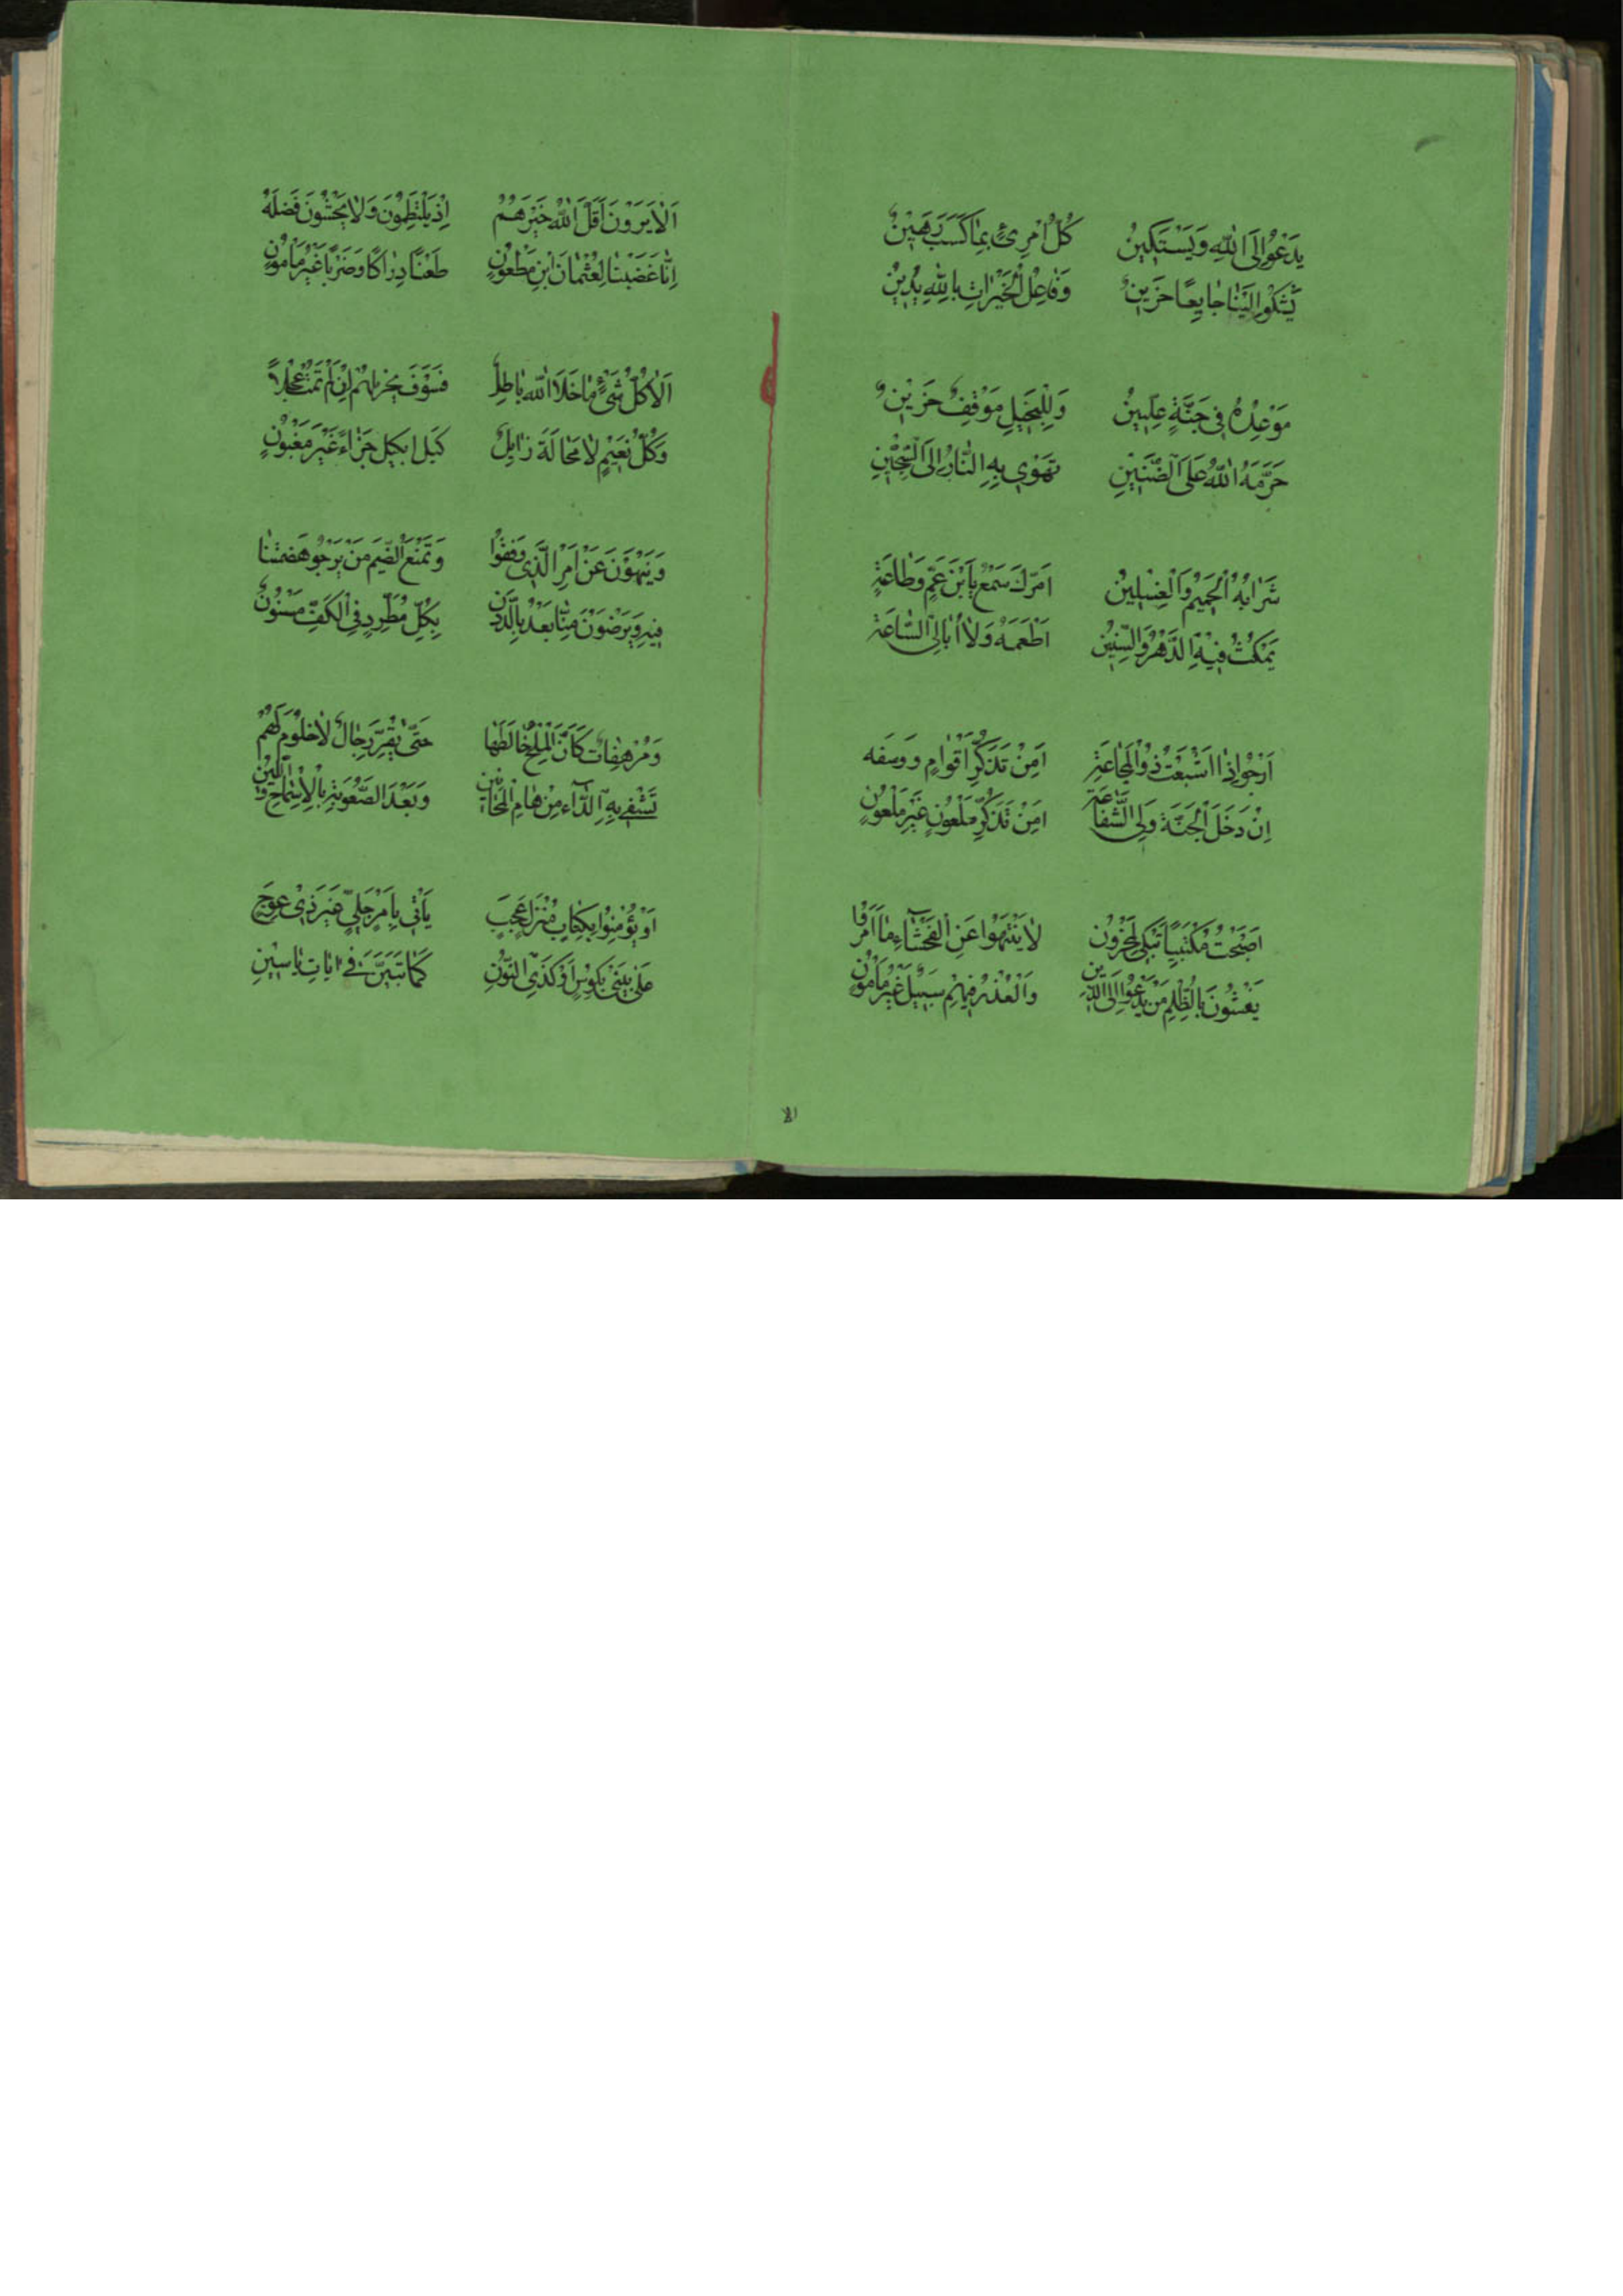 يَدْعُو إِلَى اللّٰهِ وَيَسْتَكِينُ كُلُّ امْرِئٍ بِمَا كَسَبَ رَهِينٌ
يَشْكُوا إِلَيْنَا جَايِعًا حَزِينٌ وَفَاعِلُ الْخَيْرَاتِ بِاللّٰهِ يُدِينُ
مَوْعِدُهُ فِي جَنَّةٍ عِلِّيِينُ وَلِلْبَخِيلِ مَوْقِفٌ حَزِينٌ
حَرَّمَهُ اللّٰهُ عَلَى الضَّنِينِ تَهْوِي بِهِ النَّارُ إِلَى السِّجِّينِ
شَرَابُهُ الْحَمِيمُ وَالْغِسْلِينُ اَمْرُكَ سَمْعٌ يَا بْنَ عَمٍّ وَطَاعَةٍ
يَمْكُثُ فِيهِ الدَّهْرُ وَالسِّنِينُ اَطْعَمَهُ وَلَا أُبَالِي السَّاعَةَ
اَرْجُو إِذَا اَشْبَعْتُ ذُو الْمَجَاعَةِ اَمِنْ تَذَكُّرِ اَقْوَامٍ ووسفه
اِنْ دَخَلَ الْجَنَّةَ وَلِي الشَّفَاعَةِ اَمِنْ تَذَكُّرِ مَلْعُونٍ غَيْرِ مَلْعُونٍ
اَصْبَحْتُ مُكْتَئِبًا تَبْكِي لِمَحْزُون لَا يَنْتَهُوا عَنِ الْفَحْشَاءِ مَا اَمَرُوا
يَغْشُونَ بِالظُّلْمِ مَنْ يَدْعُوا إِلَى الدِّينِ وَالْغَدْرُ فِيهِمْ سَبِيلٌ غَيْرُ مَأْمُونٍ
اَلَا يَرَوْنَ اَقَلَّ اللّٰهُ خَيْرَهُمُ إِذْ يَلْتَطِمُونَ وَلَا يَخْشَوْنَ فَضْلَهُ
اِنَّا غَضِبْنَا لِعُثْمَانَ ابْنِ مَظْعُونِ طَعْنًا دِرَاكًا وَضَرْبًا غَيْرَ مَأْمُونٍ
اَلَا كُلُّ شَيْءٍ مَا خَلَا اللّٰهَ بَاطِلُ فَسَوْفَ يجزيهم إِنْ لَمْ تَمُتْ عَجَلًا
وَكُلُّ نَعِيمٍ لَا مَحَالَةَ زَايِلٌ كَيْلًا بكيل جَزَاءً غَيْرَ مَغْبُونٍ
وَيَنْهَوْنَ عَنْ اَمْرِ الَّذِي وَقَفُوا وَتَمْنَعُ الضَّيْمَ مَنْ يَرْجُو هَضِمَتَنَا
فِيهِ وَيَرْضَوْنَ مِنَّا بَعْدُ بِالدُّونِ بِكُلِّ مُطَّرِدٍ فِي الْكَفِّ مَسْنُونٌ
وَمُرْهِفَاتٌ كَأَنَّ الْمِلْحَ خَالَطَهَا حَتَّى يُقِرَّ رِجَالٌ لَا حُلُومَ لَهُمْ
تَشْفِي بِهِ الدَّاءَ مِنْ هَامِ الْمَجَانِينِ وَبَعْدَ الصُّعُوبَةِ بِالْإِسْمَاحِ وَاللِّينِ
اَوْ يُؤْمِنُوا بِكِتَابٍ مُنْزَلٍ عَجَبٍ يَأْتِي بِاَمْرٍ جَلِيٍّ غَيْرِ ذِي عِوَجٍ
عَلَى نَبِيٍّ كَمُوسٍ اَوْ كَذِي النُّونِ كَمَا تَبَيَّنَ فِي اٰيَاتِ يَاسِينِ